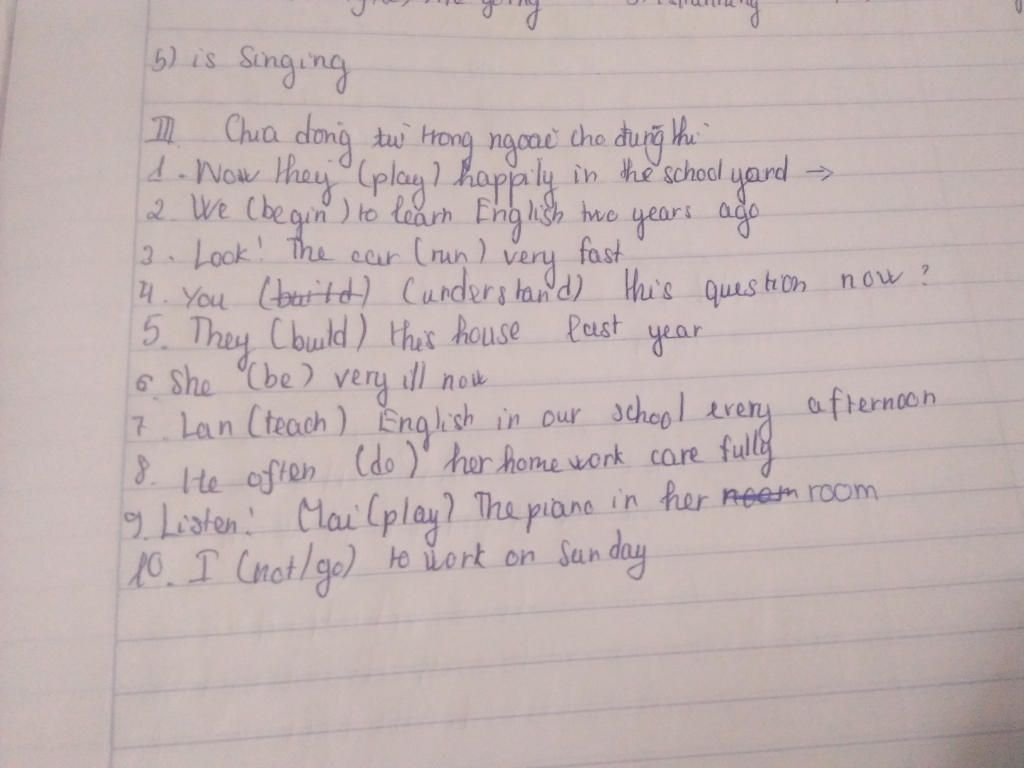 going
5) is Singing
III Chia động từ trong ngoặc cho đúng thì
1. Now they (play) happily in the school yard →
2. We (begin) to learn English two years ago
3. Look! The car (run) very fast
4. You (build) (understand) this question now?
5. They (build) this house last year
6. She (be) very ill now
7. Lan (teach) English in our school every afternoon
8. He often (do) her home work care fully
9. Listen! Mai (play) The piano in her room
10. I (not/go) to work on Sunday